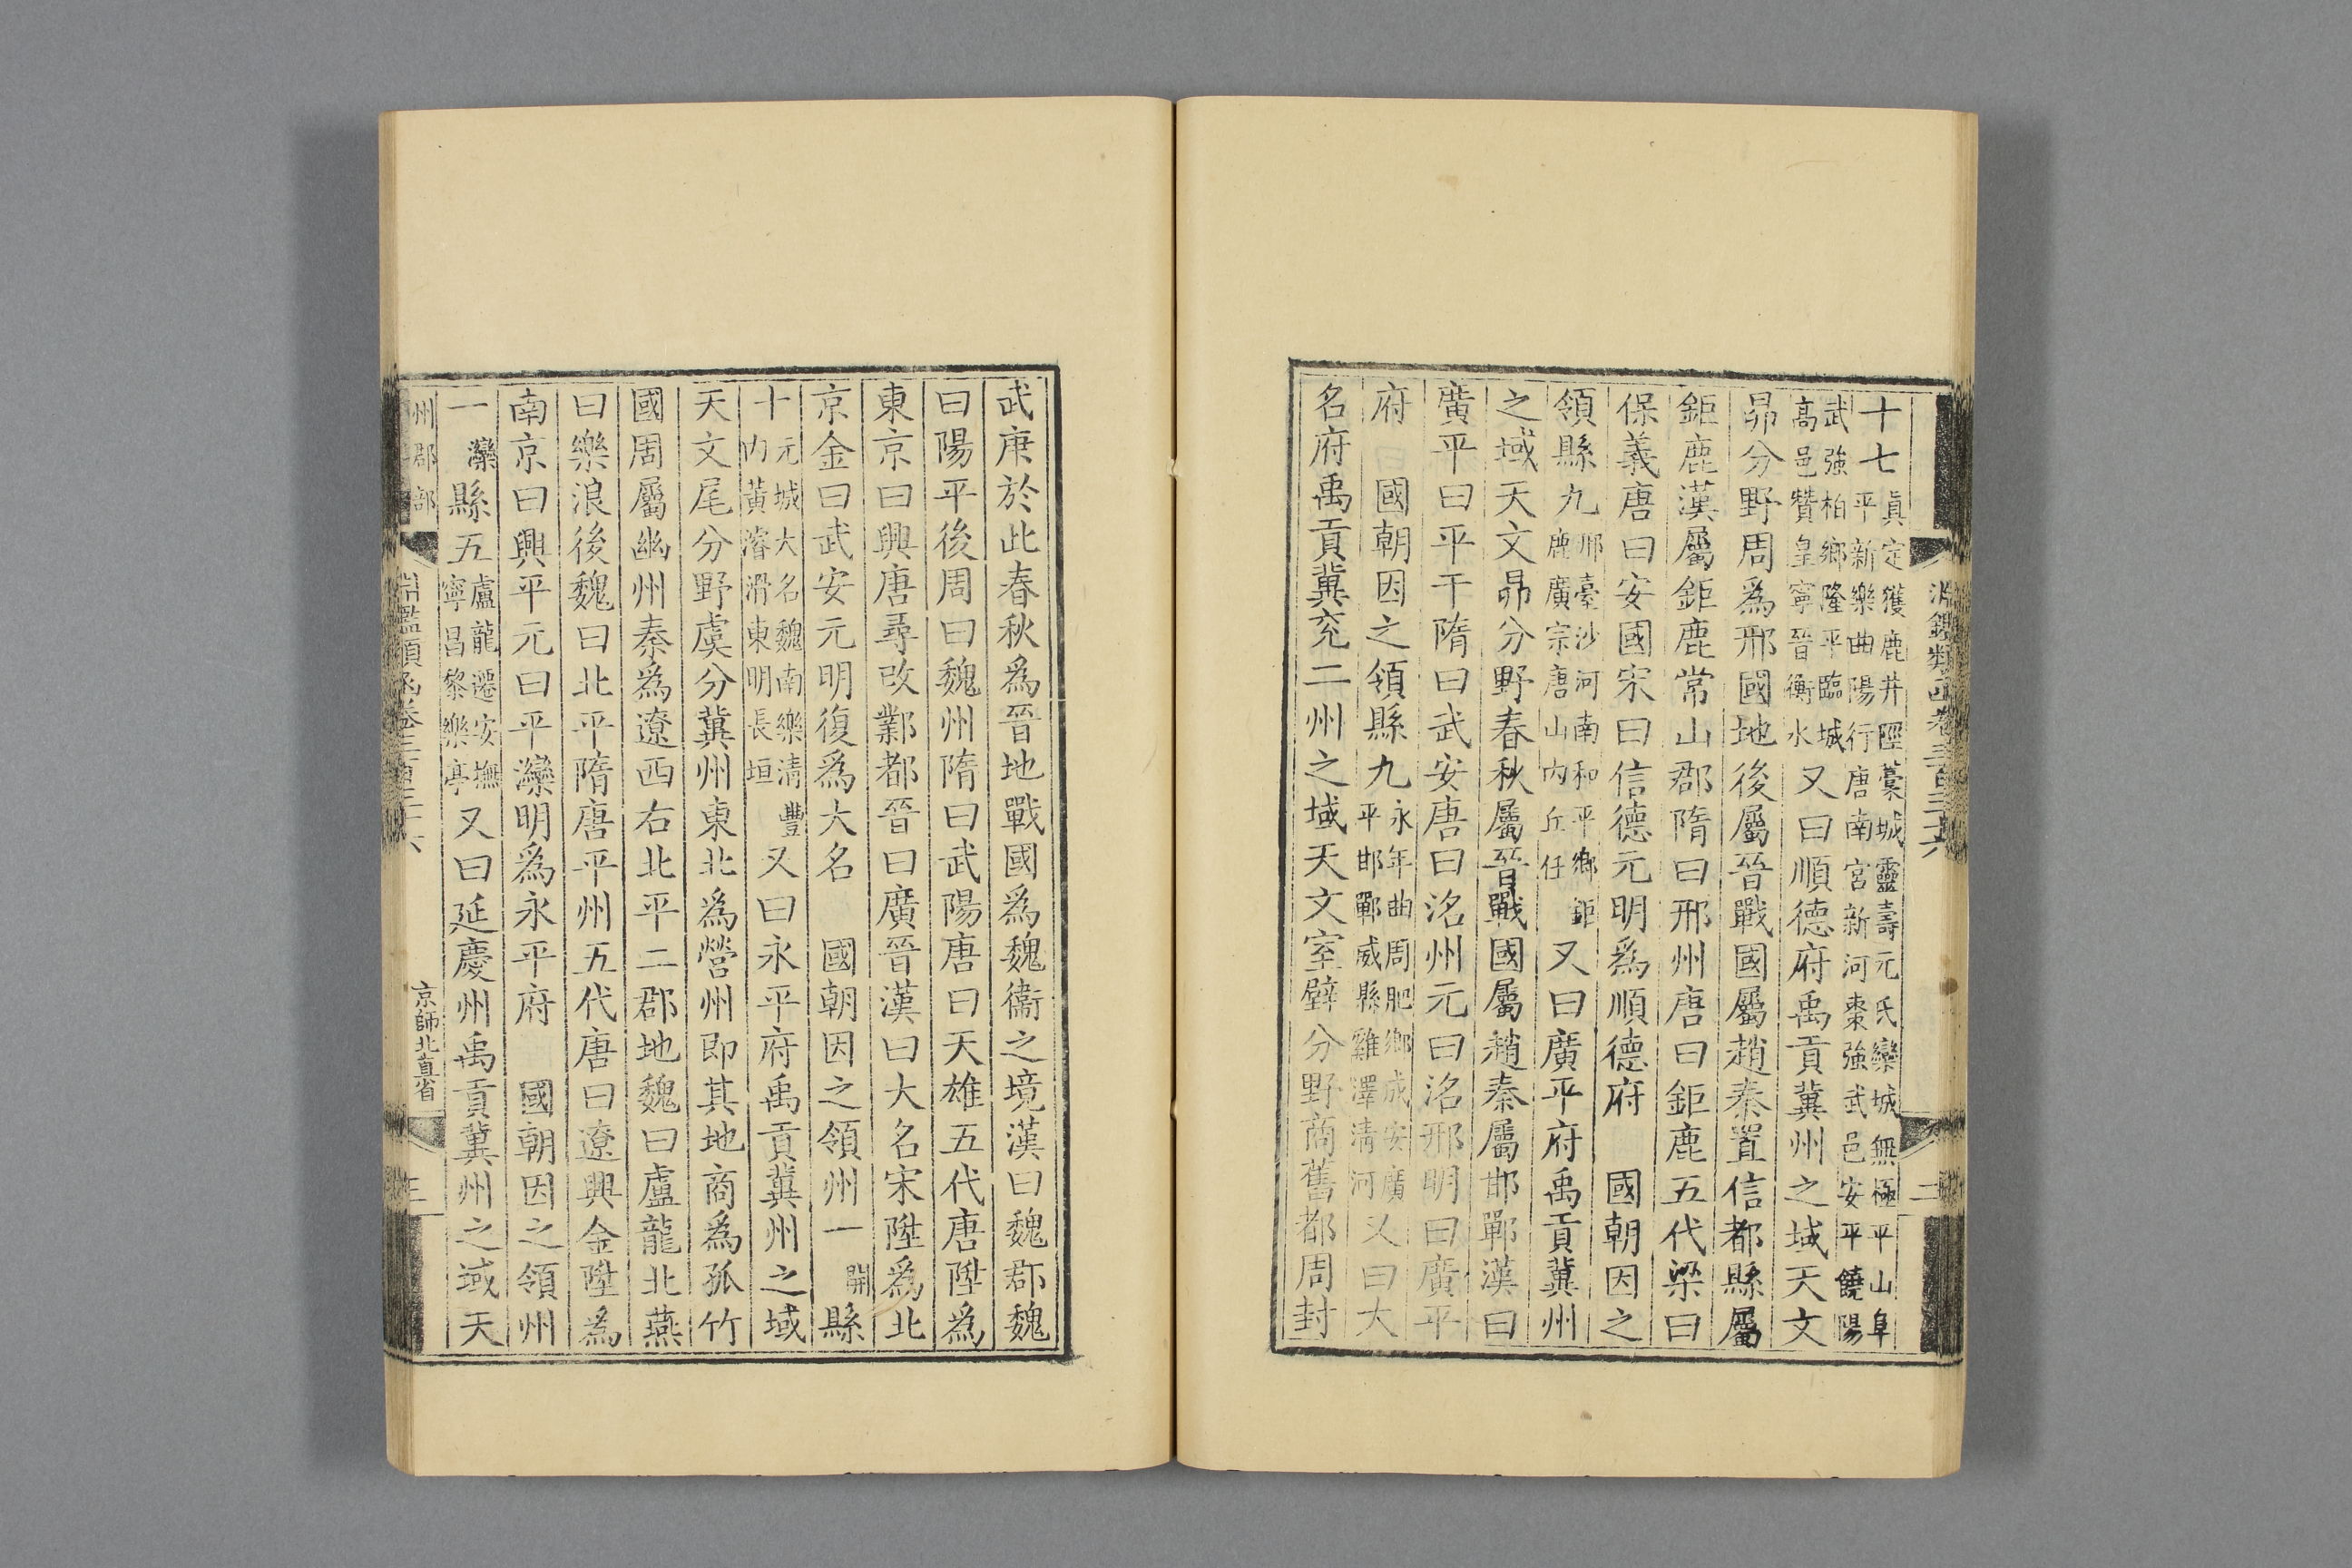 淵鑑類函卷三百三十六
二
十七眞定獲鹿井陘藁城靈壽元氏欒城無極平山阜
平新樂曲陽行唐南宮新河棗強武邑安平饒陽
武強柏鄉隆平臨城
高邑贊皇寧晉衡水又曰順德府禹貢冀州之域天文
昴分野周爲邢國地後屬晉戰國屬趙秦置信都縣屬
鉅鹿漢屬鉅鹿常山郡隋曰邢州唐曰鉅鹿五代梁曰
保義唐曰安國宋曰信德元明爲順德府 國朝因之
領縣九邢臺沙河南和平鄉鉅
鹿廣宗唐山內丘任又曰廣平府禹貢冀州
之域天文昴分野春秋屬晉戰國屬趙秦屬邯鄲漢曰
廣平曰平干隋曰武安唐曰洺州元曰洺邢明曰廣平
府 國朝因之領縣九永年曲周肥鄉成安廣
平邯鄲威縣雞澤清河又曰大
名府禹貢冀兖二州之域天文室壁分野商舊都周封
武庚於此春秋爲晉地戰國爲魏衞之境漢曰魏郡魏
曰陽平後周曰魏州隋曰武陽唐曰天雄五代唐陞爲
東京曰興唐尋改鄴都晉曰廣晉漢曰大名宋陞爲北
京金曰武安元明復爲大名 國朝因之領州一開縣
十元城大名魏南樂清豐
內黃濬滑東明長垣又曰永平府禹貢冀州之域
天文尾分野虞分冀州東北爲營州即其地商爲孤竹
國周屬幽州秦爲遼西右北平二郡地魏曰盧龍北燕
曰樂浪後魏曰北平隋唐平州五代唐曰遼興金陞爲
南京曰興平元曰平灤明爲永平府 國朝因之領州
一灤縣五盧龍遷安撫
寧昌黎樂亭又曰延慶州禹貢冀州之域天
州郡部
鑑類函卷三百三十六
京師北直省
三